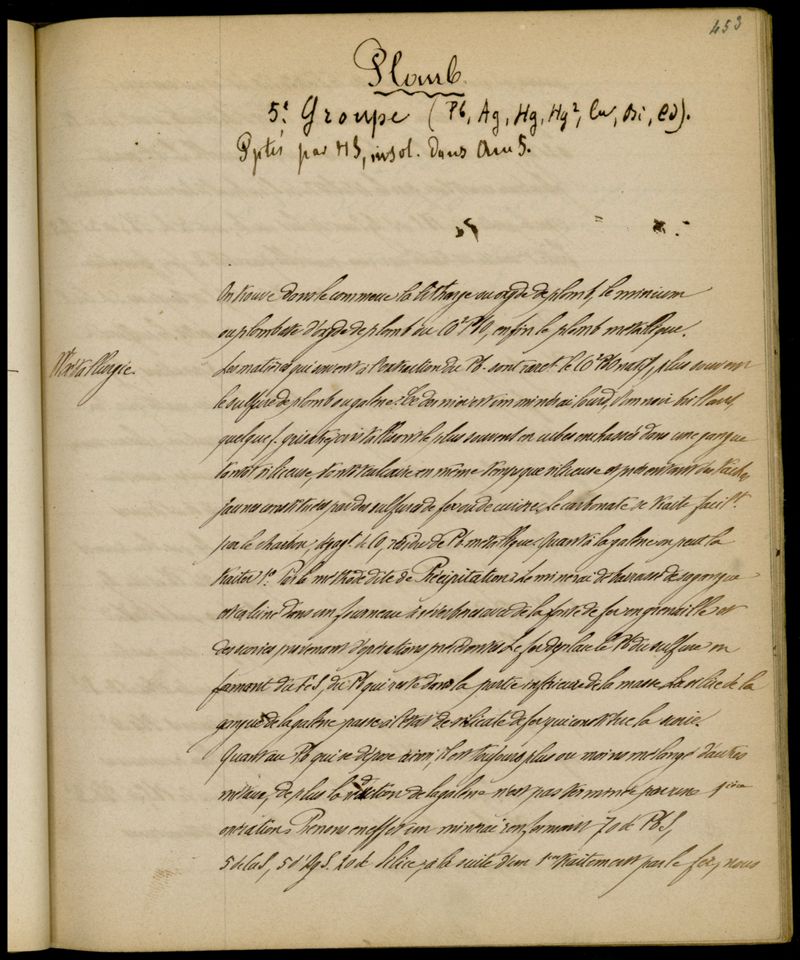 453
Plomb.
5.e Groupe (Pb, Ag, Hg, Hg², Cu, Bi, Cd).
Pptés par HS, insol. dans Am S.
On trouve dans le commerce la litharge ou oxyde de plomb, le minium
ou plombate d'oxyde de plomb ou CO² PbO, enfin le plomb métallique.
Métallurgie.
Les matières qui servent à l'extraction du Pb sont rarement le CO² PbO natif, plus souvent
le sulfure de plomb ou galène. Ce dernier est un minerai lourd, d'un noir brillant
quelquef. grisâtre, cristallisant le plus souvent en cubes enchassés dans une gangue
tantôt siliceuse, tantôt calcaire en même temps que siliceuse et présentant des taches
jaunes constituées par des sulfures de fer ou de cuivre. Le carbonate se traite facilt.
par le charbon; dégagt. de CO, résidu de Pb métallique. Quant à la galène on peut la
traiter 1.º Par la méthode dite de Précipitation. Le minerai débarrassé de sa gangue
est calciné dans un fourneau à réverbère avec de la fonte de fer en grenaille et
des scories provenant d'opérations précédentes. Le fer déplace le Pb du sulfure en
formant du FeS, du Pb qui reste dans la partie inférieure de la masse. La silice de la
gangue de la galène passe à l'état de silicate de fer qui constitue la scorie.
Quant au Pb qui se dépose ainsi, il est toujours plus ou moins mélangé d'autres
métaux, de plus la réduction de la galène n'est pas terminée par une 1ière
opération. Prenons en effet un minerai renfermant 70 de PbS,
5 de CuS, 5 d'AgS. 20 de Silice, à la suite d'un 1er traitement par le fer, nous